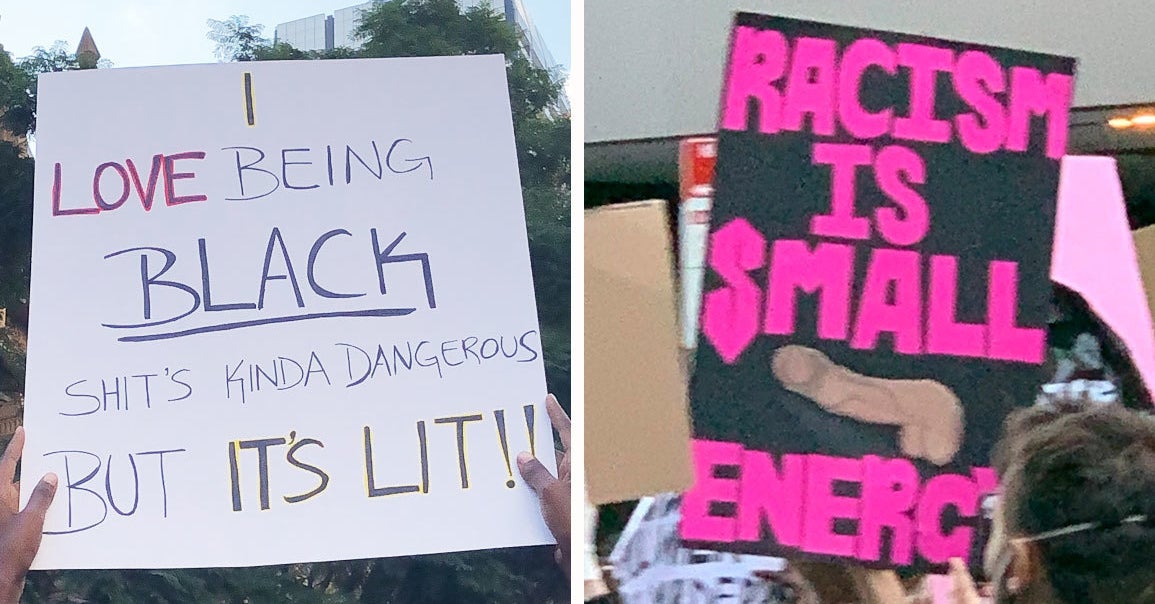 I
LOVE BEING
BLACK
SHIT'S KINDA DANGEROUS
BUT IT'S LIT!!
RACISM
IS
SMALL
ENERGY